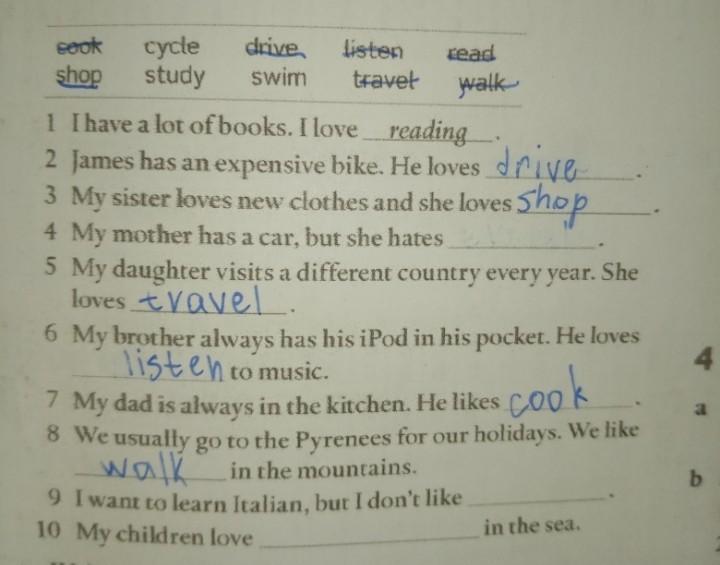 cook cycle drive listen read
shop study swim travel walk
1 I have a lot of books. I love reading.
2 James has an expensive bike. He loves drive.
3 My sister loves new clothes and she loves shop.
4 My mother has a car, but she hates ___.
5 My daughter visits a different country every year. She
loves travel.
6 My brother always has his iPod in his pocket. He loves
listen to music.
7 My dad is always in the kitchen. He likes cook.
8 We usually go to the Pyrenees for our holidays. We like
walk in the mountains.
9 I want to learn Italian, but I don't like ___.
10 My children love ___ in the sea.
4
a
b